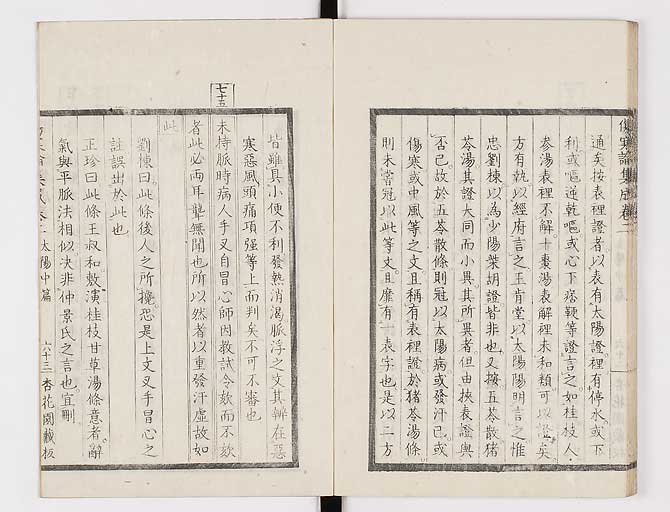 傷寒論集成卷二
通矣按表裡證者以表有太陽證裡有停水或下
利或嘔逆乾嘔或心下痞鞕等證言之如桂枝人
參湯表裡不解十棗湯表解裡未和類可以證矣
方有執以經府言之王肯堂以太陽陽明言之惟
忠劉棟以為少陽柴胡證皆非也又按五苓散猪
苓湯其證大同而小異其所異者但由挾表證與
否已故於五苓散條則冠以太陽病或發汗已或
傷寒或中風等之文且稱有表裡證於猪苓湯條
則未嘗冠以此等文且靡有一表字也是以二方
皆雖具小便不利發熱消渴脈浮之文其辨在惡
寒惡風頭痛項強等上而判矣不可不審也
七十五
未持脈時病人手叉自冒心師因教試令欬而不欬
者此必兩耳聾無聞也所以然者以重發汗虛故如
此
劉棟曰此條後人之所攙恐是上文叉手冒心之
註誤出於此也
正珍曰此條王叔和敷演桂枝甘草湯條意者辭
氣與平脈法相似決非仲景氏之言也宜刪
太陽中篇
六十三
杏花園藏板